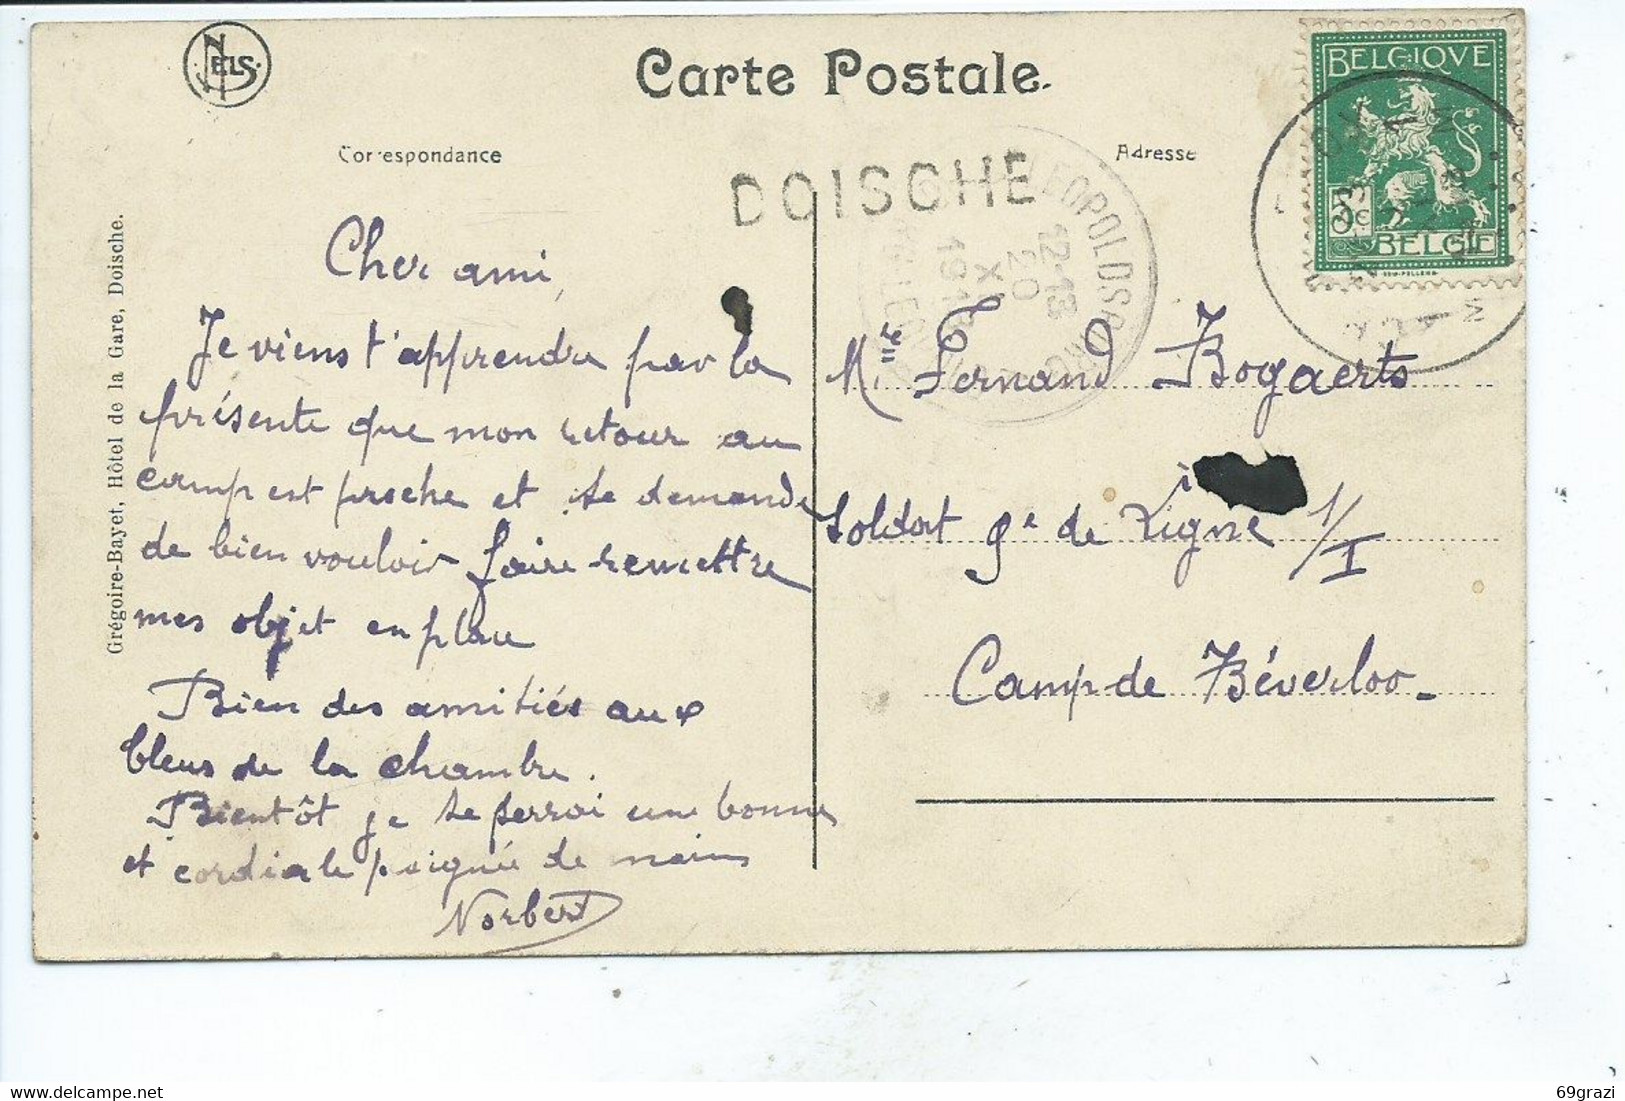 NELS
Carte Postale.
Correspondance
Adresse
DOISCHE
LEOPOLDSB
12-13
20
XI
191
BELGIQUE
5c
BELGIË
Grégoire-Bayet, Hôtel de la Gare, Doische.
Cher ami,
Je viens t'apprendre par la
présente que mon retour au
camp est proche et te demande
de bien vouloir faire remettre
mes objet en place
Bien des amitiés aux
bleus de la chambre.
Bientôt je te serrai une bonne
et cordiale poignée de mains
Norbert
Mr Fernand Bogaerts
Soldat 9e de Ligne 1/I
Camp de Béverloo-
69grazi